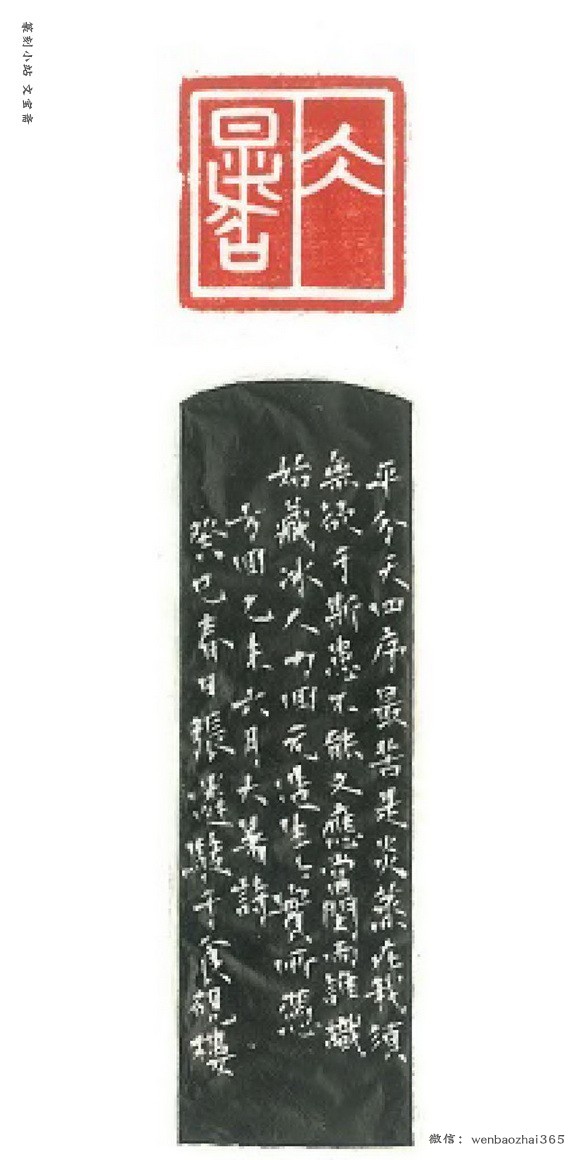 篆刻小站 文宝斋
大暑
平分天四序最苦是炎蒸在我須
無欲于斯患不能久應當閟雨誰識
始藏冰人力回元造生々實所憑
方回乙未六月大暑詩
癸巳春日張凝于食硯樓
微信：wenbaozhai365